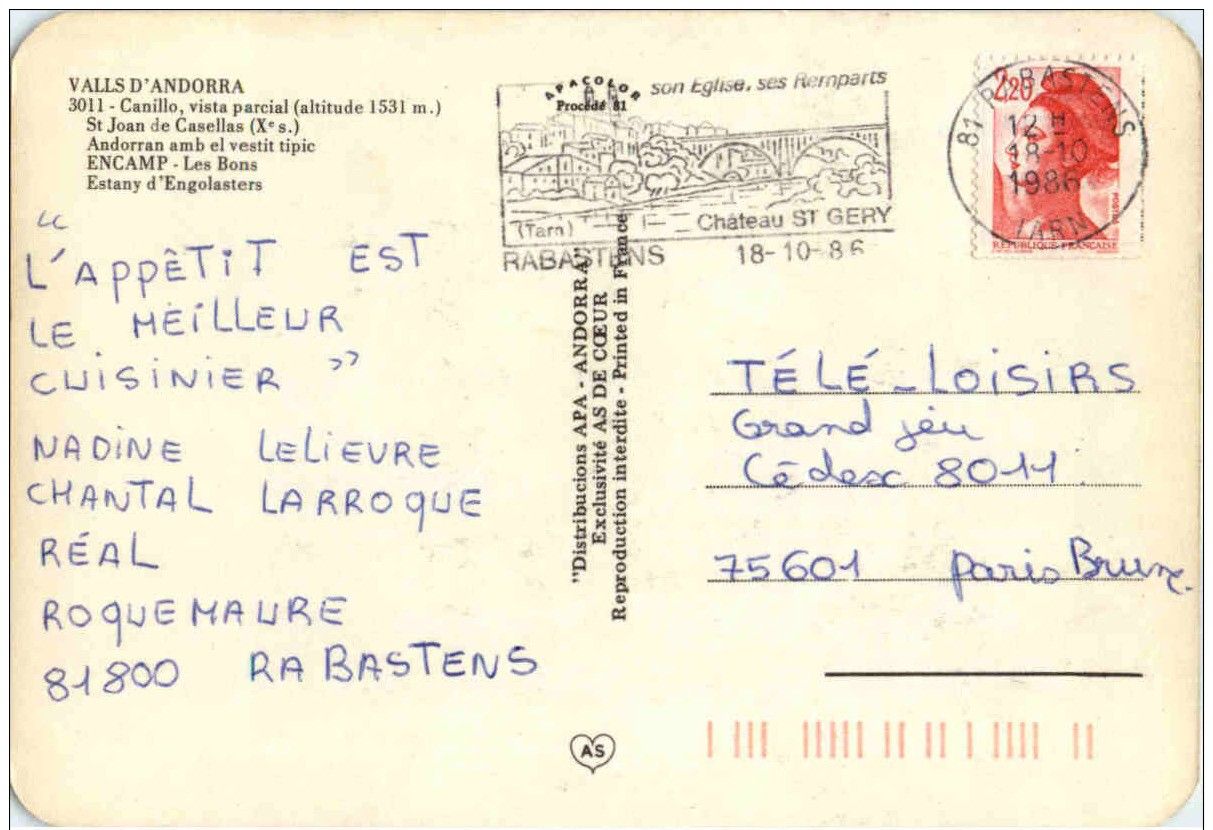 VALLS D'ANDORRA
3011 - Canillo, vista parcial (altitude 1531 m.)
St Joan de Casellas (Xe s.)
Andorran amb el vestit tipic
ENCAMP - Les Bons
Estany d'Engolasters
APACOLOR
Procédé 81
son Eglise, ses Remparts
(Tarn)
Château ST GERY
RABASTENS
18-10-86
81 RABASTENS
12 H
18-10
1986
TARN
2,20
REPUBLIQUE FRANCAISE
"L'APPÊTIT EST
LE MEILLEUR
CUISINIER"
NADINE LELIEVRE
CHANTAL LARROQUE
RÉAL
ROQUEMAURE
81800 RABASTENS
"Distribucions APA - ANDORRA"
Exclusivité AS DE CŒUR
Reproduction interdite - Printed in France
TÉLÉ-LOISIRS
Grand jeu
Cédex 8011
75601 Paris Brune.
AS